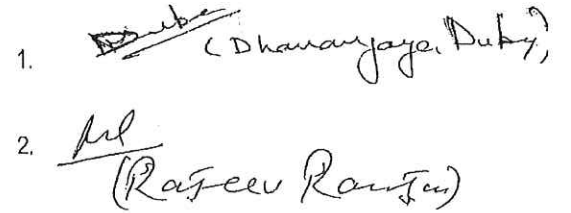 1. Dube (Dhananjaya Dubey)
2.
(Rajeev Ranjan)